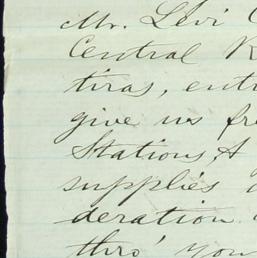 Mr. Levi
Central R
tiras, enti
give us fre
Stations, &
supplies
deration
thro' you